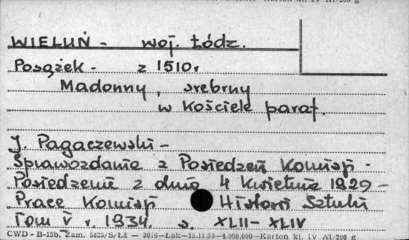 WIELUŃ - woj. Łódz.
Posążek - z 1510r
Madonny, srebrny
w Kościele paraf.
J. Pagaczewski -
Sprawozdanie z Posiedzeń Komisji -
Posiedzenie z dnia 4 Kwietnia 1929 -
Prace Komisji Historii Sztuki
Tom V r. 1934. s. XLII - XLIV
CWD - B-15b. Zam. Łak 4.000.000 Karton kl. IV A1/200 g